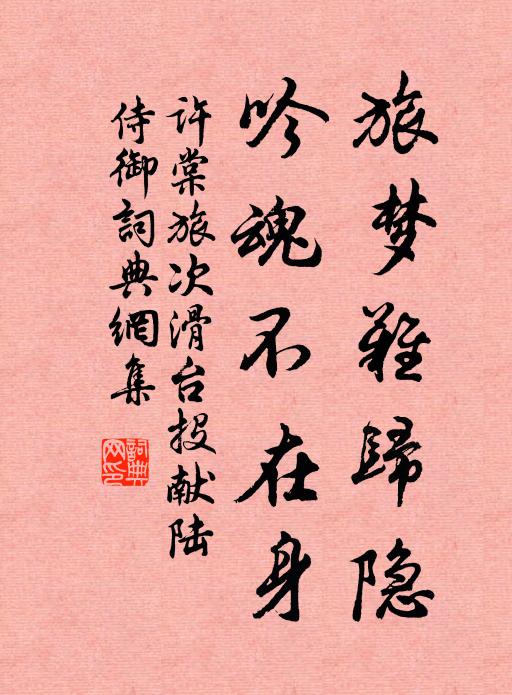 旅梦难歸隐
吟魂不在身
许棠旅次滑台投献陆
侍御詞典網集
詞典网印